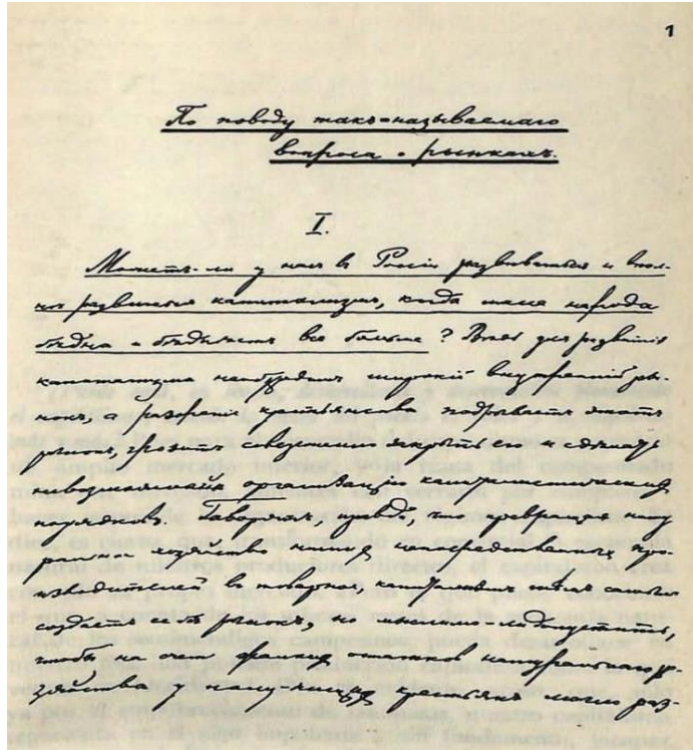 1
По поводу такъ-называемаго
вопроса о рынкахъ.
I.
Можетъ-ли у насъ въ Россіи развиваться и впол-
нѣ развиться капитализмъ, когда масса народа
бѣдна и бѣднѣетъ все больше? Вѣдь для развитія
капитализма необходимъ широкій внутренній ры-
нокъ, а разореніе крестьянства подрываетъ этотъ
рынокъ, грозитъ совершенно закрыть его и сдѣлать
невозможной организацію капиталистическихъ
порядковъ. Говорятъ, правда, что, превращая нату-
ральное хозяйство нашихъ непосредственныхъ про-
изводителей въ товарное, капитализмъ тѣмъ самымъ
создаетъ себѣ рынокъ, но мыслимо-ли допустить,
чтобы на счетъ жалкихъ остатковъ натуральнаго хо-
зяйства у полунищихъ крестьянъ могло раз-